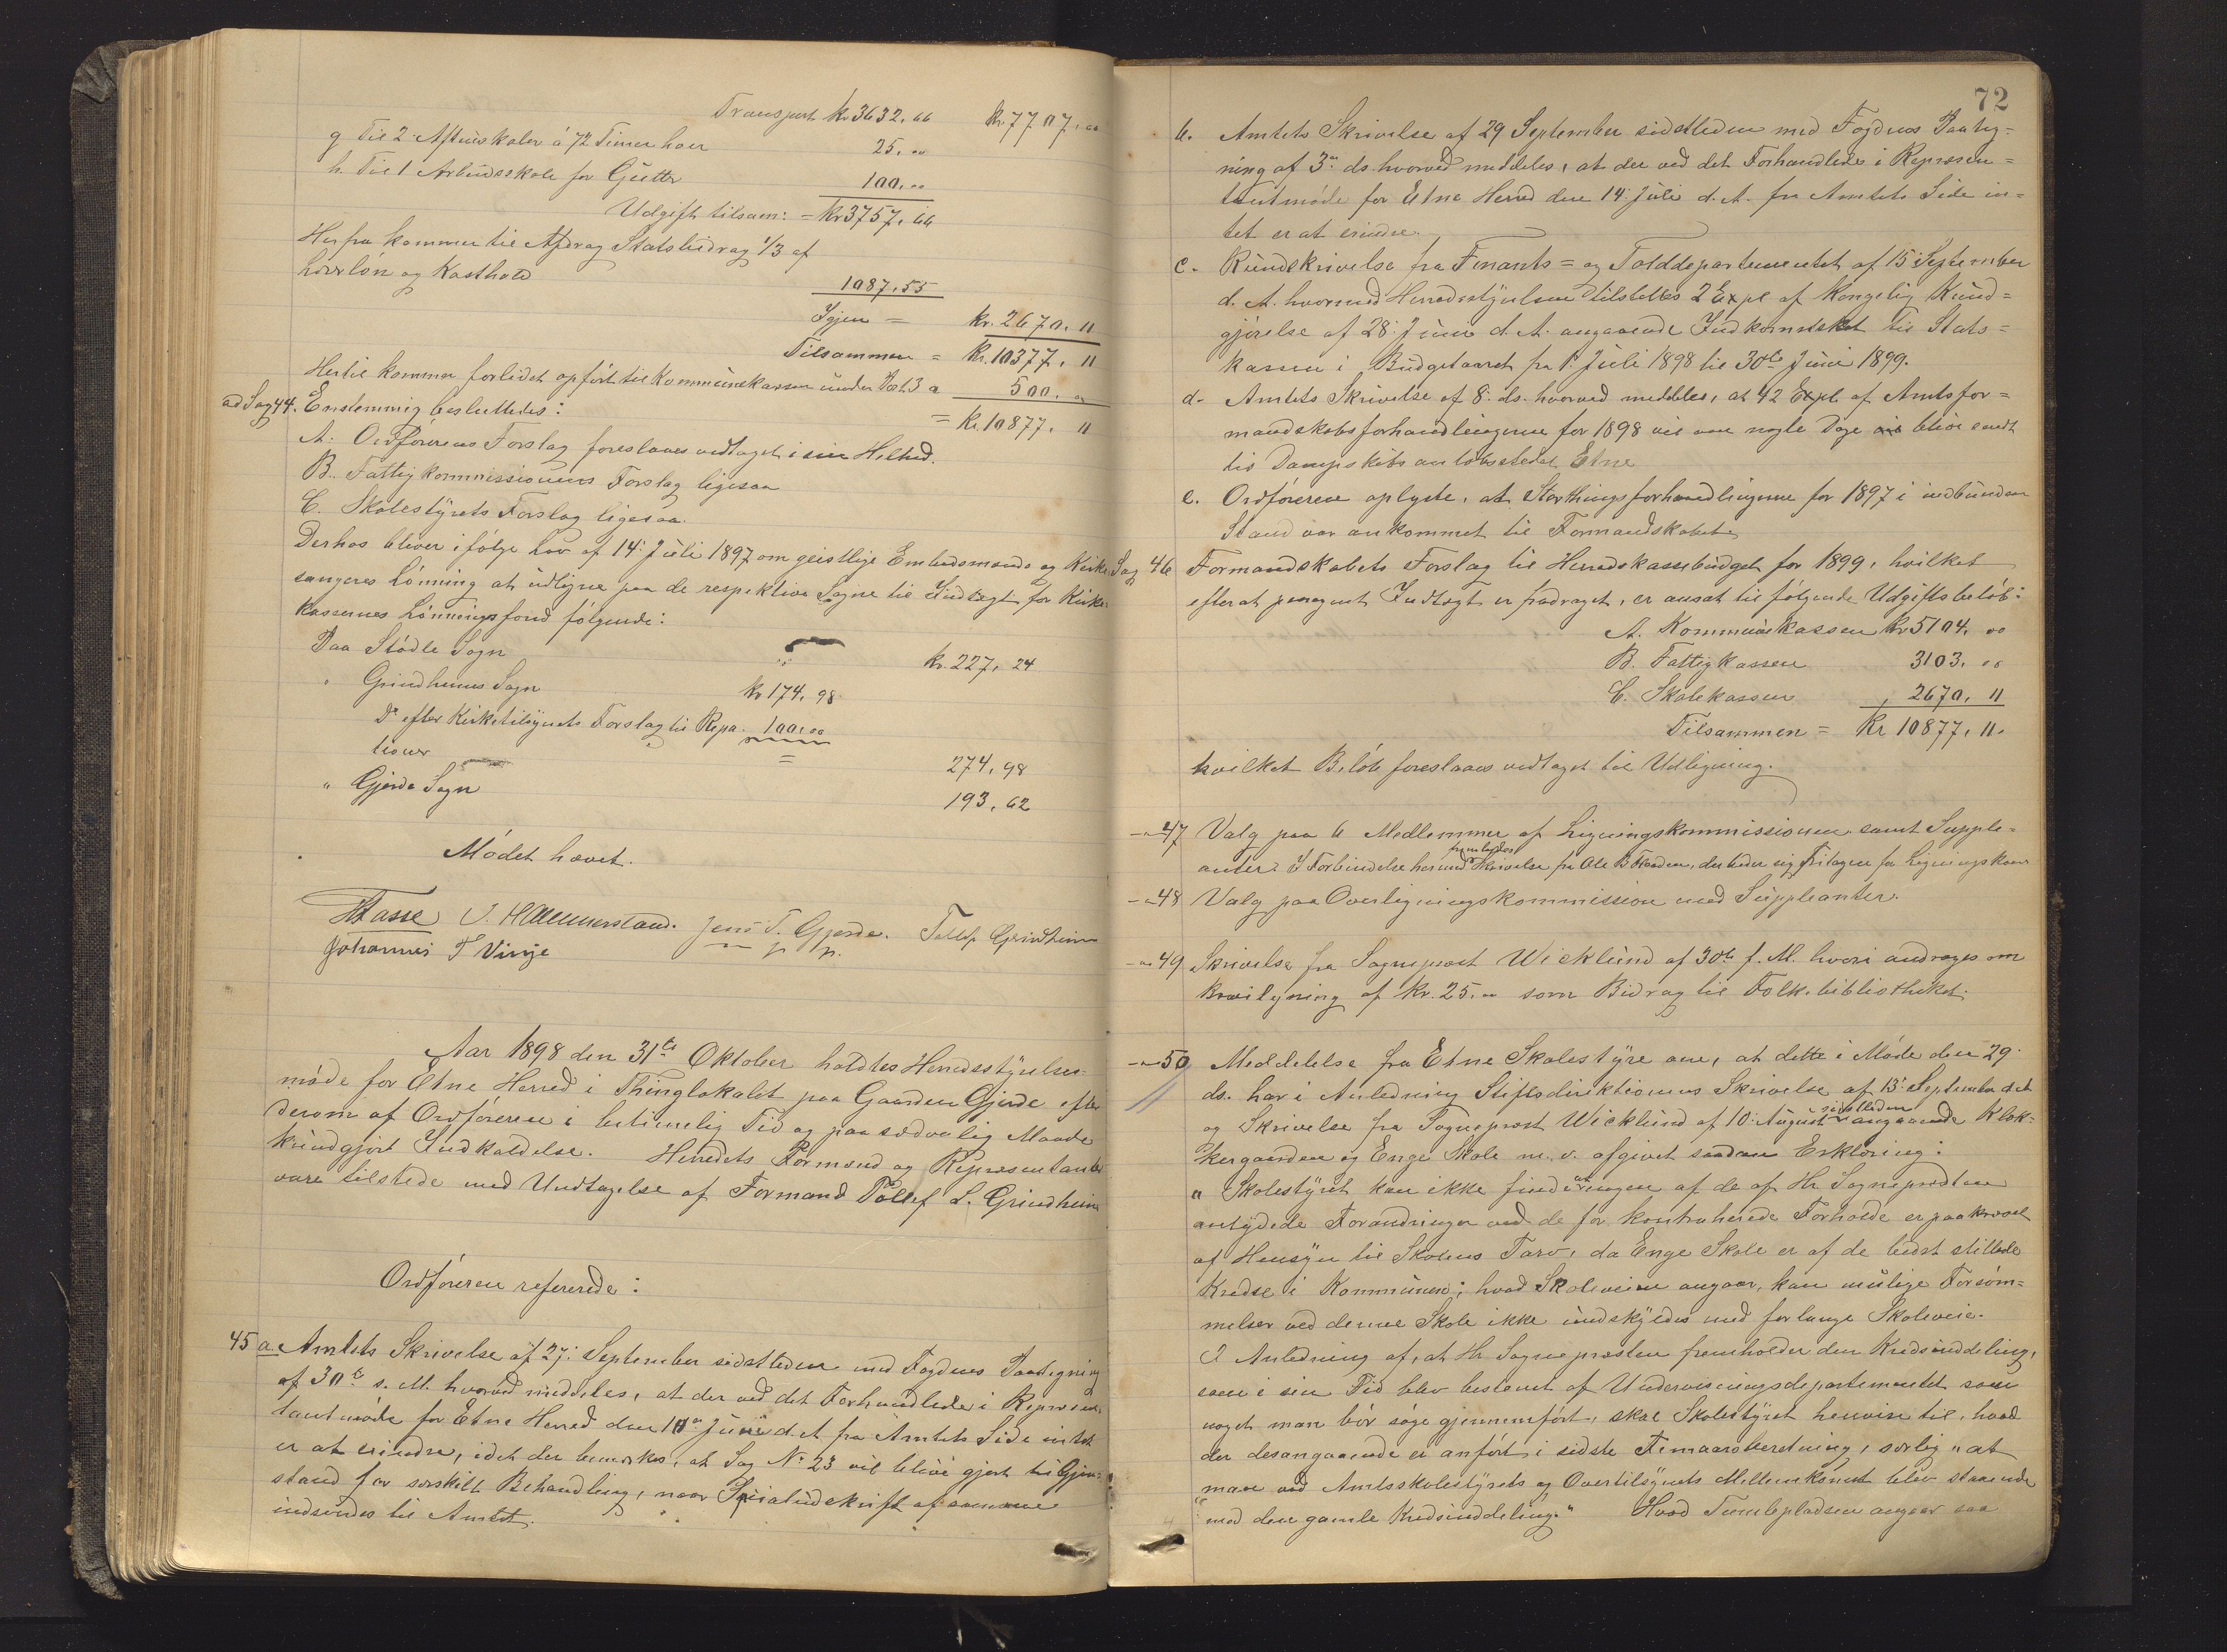 Transport kr. 3632,66 kr. 7707,00
g Til 2 Aftenskoler á 72 Timer hver 25,00
h. Til 1 Arbeidsskole for Gutter 100,00
Udgift tilsam: = kr 3757,66
Herfra kommer til Afdrag Statsbidrag 1/3 af
Lærerløn og Kosthold 1087,55
Igjen = kr. 2670,11
Tilsammen = kr. 10377,11
Hertil kommer forlidet opført til Kommunekassen under Post 3 a 500,00
= kr. 10877,11
ad Sag 44. Enstemmig besluttedes:
A. Ordførerens Forslag foreslaaes vedtaget i sin Helhed.
B. Fattigkommissionens Forslag ligesaa
C. Skolestyrets Forslag ligesaa.
Derhos bliver ifølge Lov af 14. Juli 1897 om geistlige Embedsmænds og Kirke-
sangeres Lønning at udligne paa de respektive Sogne til Indtægt for Kirke-
kassernes Lønningsfond følgende:
Paa Stødle Sogn kr. 227,24
" Grindheims Sogn kr 174,98
Do efter Kirketilsynets Forslag til Repa- 100,00
tioner = 274,98
" Gjerde Sogn 193,62
Mødet hævet.
J. Hammerstand. Jens T. Gjerde. Tollef Grindheim
Johannes T Vinje
Aar 1898 den 31te Oktober holdtes Herredsstyrelses-
møde for Etne Herred i Thinglokalet paa Gaarden Gjerde efter
derom af Ordføreren i betimelig Tid og paa sædvalig Maade
kundgjort Indkaldelse. Herredets Formænd og Repræsentanter
vare tilstede med Undtagelse af Formand Tollef L. Grindheim
Ordføreren refererede:
45 a. Amtets Skrivelse af 27. September sidstleden med Fogdens Paategning
af 30te s. M. hvorved meddeles, at der ved det Forhandlede i Repræsen-
tantmøde for Etne Herred den 10de Juni d. A. fra Amtets Side intet
er at erindre, idet der bemærkes, at Sag No 23 vil blive gjort til Gjen-
stand for særskilt Behandling, naar Specialudskrift af samme
indsendes til Amtet.
72
b. Amtets Skrivelse af 29 September sidstleden med Fogdens Paateg-
ning af 3die ds. hvorved meddeles, at der ved det Forhandlede i Repræsen-
tantmøde for Etne Herred den 14. Juli d. A. fra Amtets Side in-
tet er at erindre.
c. Rundskrivelse fra Finants- og Tolddepartementet af 15 September
d. A. hvormed Herredsstyrelsen tilstilles 2 Expl af Kongelig Kund-
gjørelse af 28. Juni d. A. angaaende Indkomstskat til Stats-
kassen i Budgetaaret fra 1. Juli 1898 til 30te Juni 1899.
d. Amtets Skrivelse af 8. ds. hvorved meddeles, at 42 Expl. af Amtsfor-
mandskabsforhandlingerne for 1898 vil om nogle Dage blive sendt
til Dampskibsanløbsstedet Etne
e. Ordføreren oplyste, at Storthingsforhandlingerne for 1897 i indbunden
Stand var ankommet til Formandskabet
Sag 46 Formandskabets Forslag til Herredskassebudget for 1899, hvilket
efterat Indtægt er fradraget, er ansat til følgende Udgiftsbeløb:
A. Kommunekassen kr 5104,00
B. Fattigkassen 3103,00
C. Skolekassen 2670,11
Tilsammen = Kr 10877,11.
hvilket Beløb foreslaaes vedtaget til Udligning.
-"-47 Valg paa 6 Medlemmer af Ligningskommissionen samt Supple-
anter. I Forbindelse hermed fremlagdes Skrivelse fra Ole B. der beder sig fritagen for Ligningskom
-"-48 Valg paa Overligningskommission med Suppleanter.
-"-49 Skrivelse fra Sogneprest Wicklund af 30te f. M. hvori andrages om
Bevilgning af kr. 25,00 som Bidrag til Folkebibliotheket.
-"-50 Meddelelse fra Etne Skolestyre om, at dette i Møde den 29.
ds. har i Anledning Stiftsdirektionens Skrivelse af 13. September d. A.
og Skrivelse fra Sogneprest Wicklund af 10. August sidstleden angaaende Klok-
kergaarden og Enge Skole m. v. afgivet saadan Erklæring:
" Skolestyret kan ikke finde at nogen af de af Hr Sognepresten
antydede Forandringer ved de før kontraherede Forholde er paakrævet
af Hensyn til Skolens Tarv, da Enge Skole er af de bedst stillede
Kredse i Kommunen; hvad Skoleveien angaar, kan mulige Forsøm-
melser ved denne Skole ikke undskyldes med forlange Skoleveie.
I Anledning af, at Hr Sognepresten fremholder den Kredsinddeling,
som i sin Tid blev bestemt af Undervisningsdepartementet som
noget man bør søge gjennemført, skal Skolestyret henvise til, hvad
der desangaaende er anført i sidste Femaarsberetning, særlig "at
man ved Amtsskolestyrets og Overtilsynets Mellemkomst blev staaende
"med den gamle Kredsinddeling." Hvad Tumlepladsen angaar saa